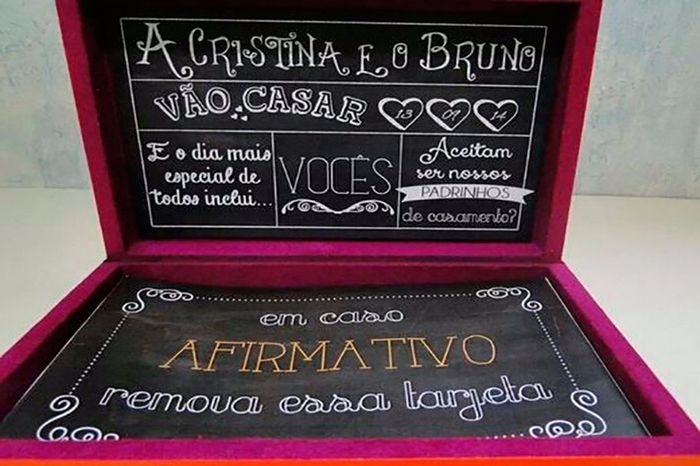 A CRISTINA E O BRUNO
VÃO CASAR 13 09 14
E o dia mais
especial de
todos inclui...
VOCÊS
Aceitam
ser nossos
PADRINHOS
de casamento?
em caso
AFIRMATIVO
remova essa tarjeta